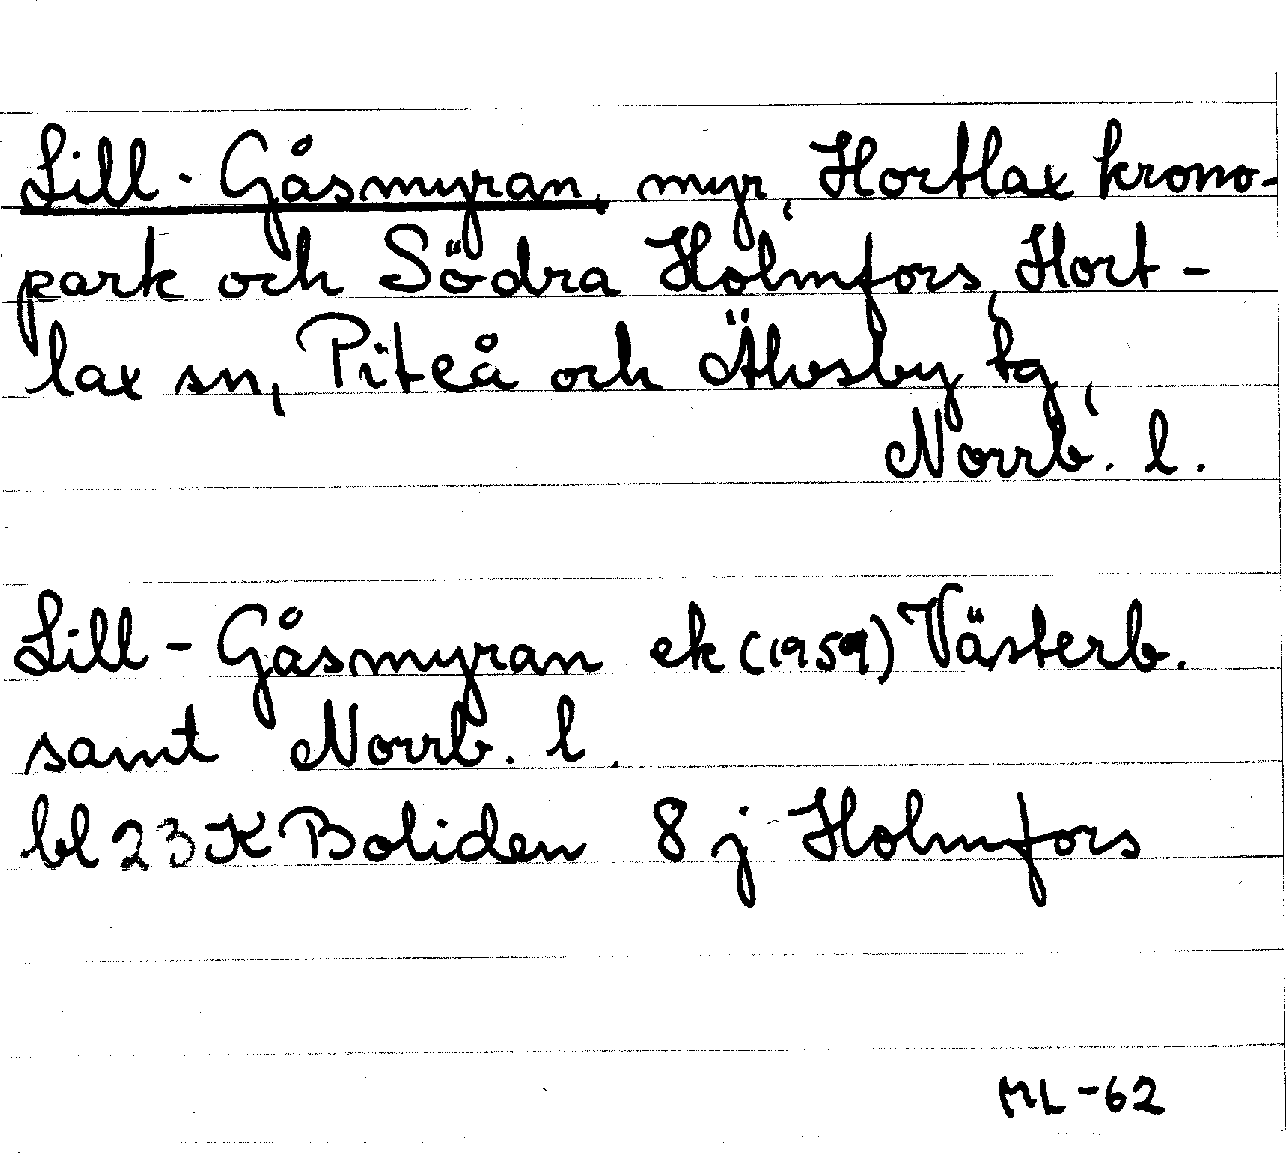 Lill-Gåsmyran, myr, Hortlax krono-
park och Södra Holmfors, Hort-
lax sn, Piteå och Älvsby tg,
Norrb. l.
Lill-Gåsmyran ek (1959) Västerb.
samt Norrb. l.
bl 23 K Boliden 8 j Holmfors
ML-62